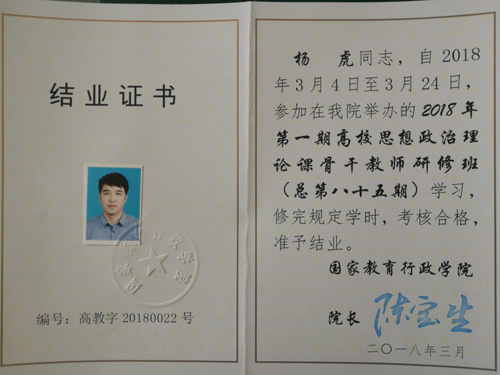 结业证书
编号：高教字 20180022 号
杨 虎同志，自 2018
年 3 月 4 日至 3 月 24 日，
参加在我院举办的 2018 年
第一期高校思想政治理
论课骨干教师研修班
（总第八十五期）学习，
修完规定学时，考核合格，
准予结业。
国家教育行政学院
院长 陈宝生
二〇一八年三月